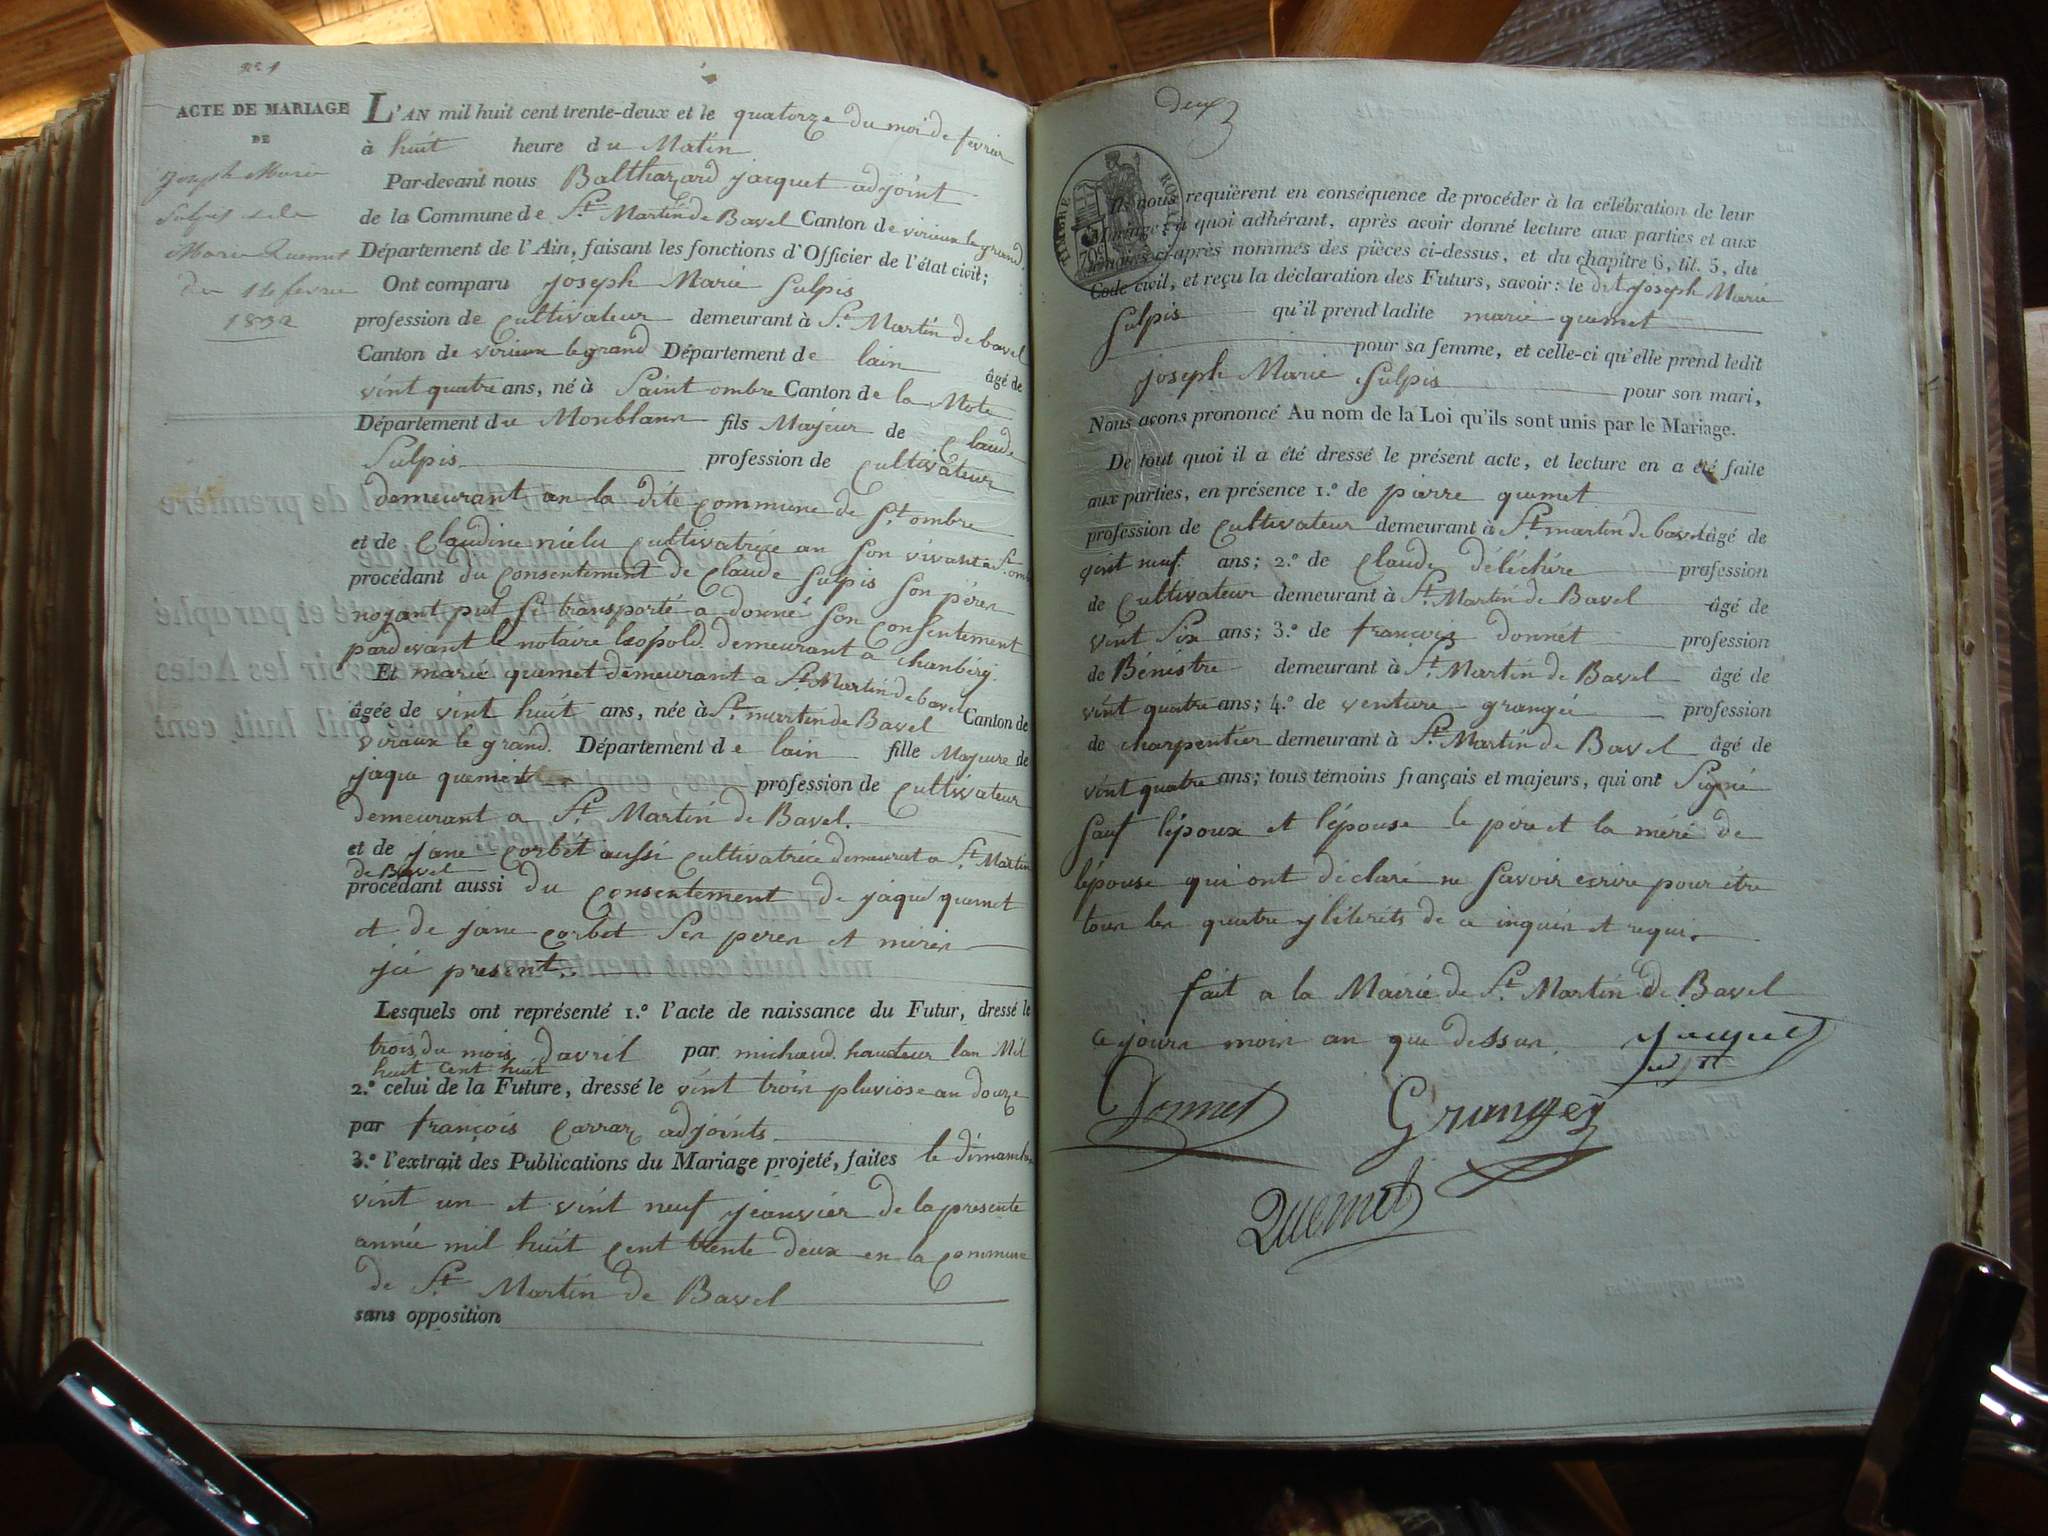 nº 1
ACTE DE MARIAGE
DE
Joseph Marie
Sulpis et de
Marie Quemet
du 14 fevrie
1832
L'AN mil huit cent trente-deux et le quatorze du moi de fevrier
à huit heure du Matin
Par-devant nous Balthazard jacquet adjoint
de la Commune de St Martin de Bavel Canton de virieux le grand
Département de l'Ain, faisant les fonctions d'Officier de l'état civil;
Ont comparu joseph Marie Sulpis
profession de cultivateur demeurant à St Martin de bavel
Canton de virieux le grand Département de lain âgé de
vint quatre ans, né à Saint ombre Canton de la Mote
Département du Monblanr fils Majeur de Claude
Sulpis profession de cultivateur
demeurant an la dite commune de St ombre
et de Claudine niélu cultivatrice an son vivant a St omb
procédant du consentement de Claude Sulpis Son péren
noyant put se transporté a donné son consentement
pardevant le notaire léopold demeurant a chanbéry.
Et marie quemet demeurant a St Martin de bavel
âgée de vint huit ans, née à St martin de Bavel Canton de
virieux le grand. Département de lain fille Majeure de
jaque quemet profession de cultivateur
demeurant a St Martin de Bavel.
et de jane corbet aussi cultivatrice demeurat a St Martin
de Bavel
procédant aussi du consentement de jaque quemet
et de jane corbet Sen peren et méren
jci present.
Lesquels ont représenté 1.º l'acte de naissance du Futur, dressé le
trois du mois davril par michaud hauteur lan Mil
huit cent huit
2.º celui de la Future, dressé le vint troin pluviose an douze
par françois carraz adjoints
3.º l'extrait des Publications du Mariage projeté, faites le dimanche
vint un et vint neuf jeanvier de la presente
année mil huit cent trente deux en la commune
de St Martin de Bavel
sans opposition
deux
TIMBRE ROYAL
70c
Ils nous requièrent en conséquence de procéder à la célébration de leur
Mariage; à quoi adhérant, après avoir donné lecture aux parties et aux
témoins ci-après nommés des pièces ci-dessus, et du chapitre 6, tit. 5, du
Code civil, et reçu la déclaration des Futurs, savoir: le dit joseph Marie
Sulpis qu'il prend ladite marie quemet
pour sa femme, et celle-ci qu'elle prend ledit
joseph Marie Sulpis pour son mari,
Nous avons prononcé Au nom de la Loi qu'ils sont unis par le Mariage.
De tout quoi il a été dressé le présent acte, et lecture en a été faite
aux parties, en présence 1.º de pierre quemet
profession de cultivateur demeurant à St martin de bavel âgé de
vint neuf ans; 2.º de Claude déléchére profession
de cultivateur demeurant à St Martin de Bavel âgé de
vint Six ans; 3.º de françois donnét profession
de Bénistre demeurant à St Martin de Bavel âgé de
vint quatre ans; 4.º de venture grangée profession
de charpentier demeurant à St Martin de Bavel âgé de
vint quatre ans; tous témoins français et majeurs, qui ont Signé
Sauf lépoux et lépouse le pére et la méré de
lépouse qui ont déclaré ne Savoir ecrire pour étre
toun len quatre jlléteréts de ce inquin et requi.
fait a la Mairie de St Martin de Bavel
ce journ moin an que dessun. Jacquet
adjt
Donnet Grangey
Quemet